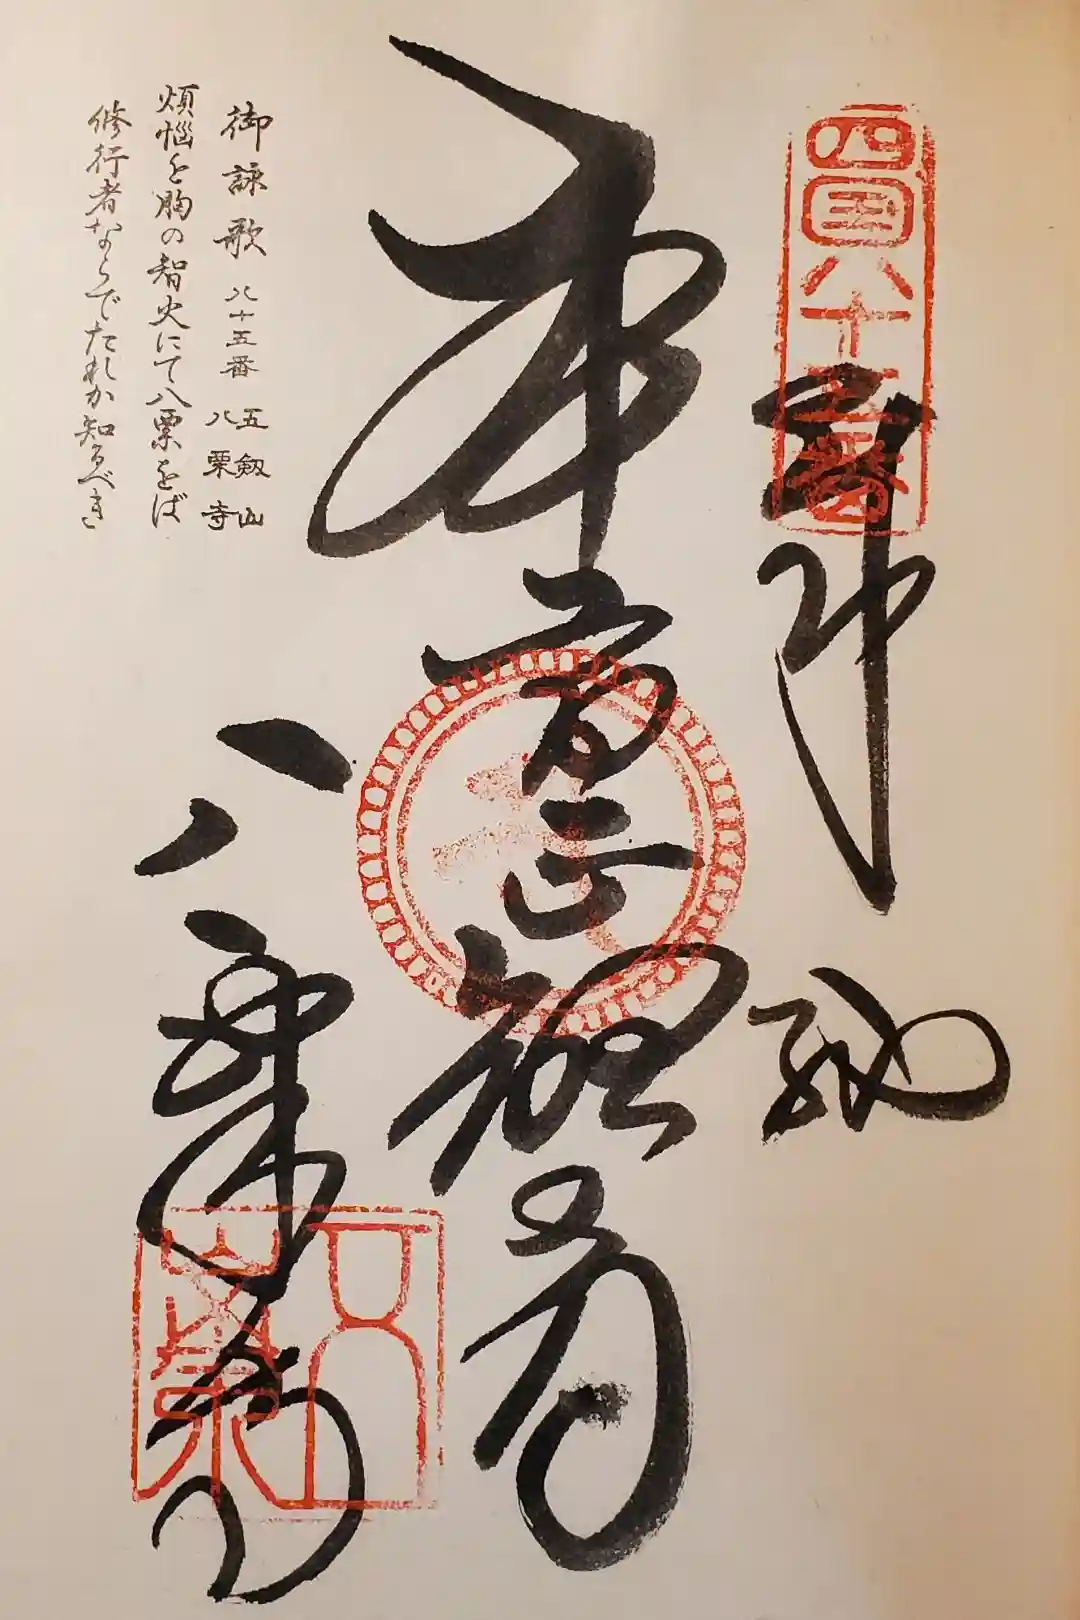 四国八十五番
奉納
本尊聖観音
八栗寺
御詠歌 八十五番 五剱山 八栗寺
煩悩を胸の智火にて八栗をば
修行者ならでたれか知るべき